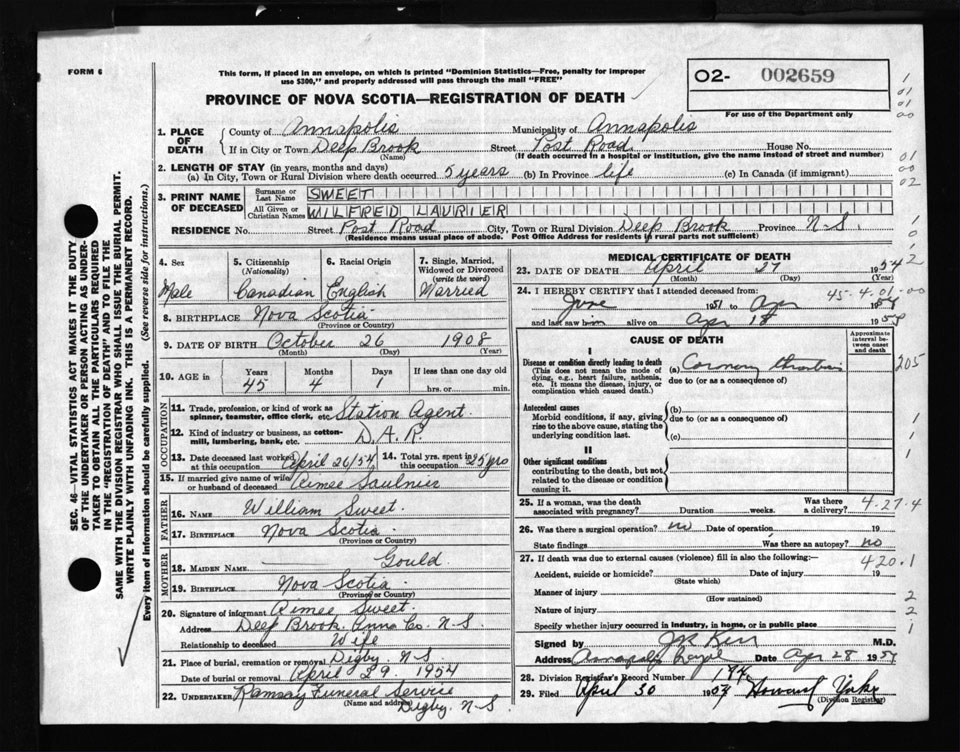 FORM 6
This form, if placed in an envelope, on which is printed "Dominion Statistics—Free, penalty for improper
use $300," and properly addressed will pass through the mail "FREE"
PROVINCE OF NOVA SCOTIA—REGISTRATION OF DEATH
O2- 002659
For use of the Department only
1. PLACE OF DEATH { County of Annapolis Municipality of Annapolis
If in City or Town Deep Brook Street Post Road House No.
(Name) (If death occurred in a hospital or institution, give the name instead of street and number)
2. LENGTH OF STAY (in years, months and days)
(a) In City, Town or Rural Division where death occurred 5 years (b) In Province life (c) In Canada (if immigrant)
3. PRINT NAME OF DECEASED Surname or Last Name SWEET
All Given or Christian Names WILFRED LAURIER
RESIDENCE No. Street Post Road City, Town or Rural Division Deep Brook Province N.S.
(Residence means usual place of abode. Post Office Address for residents in rural parts not sufficient)
4. Sex Male
5. Citizenship (Nationality) Canadian
6. Racial Origin English
7. Single, Married, Widowed or Divorced (write the word) Married
8. BIRTHPLACE Nova Scotia
(Province or Country)
9. DATE OF BIRTH October 26 1908
(Month) (Day) (Year)
10. AGE in Years 45 Months 4 Days 1 If less than one day
hrs. or min.
OCCUPATION
11. Trade, profession, or kind of work as spinner, teamster, office clerk, etc. Station Agent
12. Kind of industry or business, as cotton-mill, lumbering, bank, etc. D.A.R.
13. Date deceased last worked at this occupation April 26/54
14. Total yrs. spent in this occupation 25 yrs
15. If married give name of wife or husband of deceased Aimee Saulnier
FATHER
16. NAME William Sweet
17. BIRTHPLACE Nova Scotia
(Province or Country)
MOTHER
18. MAIDEN NAME Gould
19. BIRTHPLACE Nova Scotia
(Province or Country)
20. Signature of informant Aimee Sweet
Address Deep Brook. Anna Co. N.S.
Relationship to deceased Wife
21. Place of burial, cremation or removal Digby. N.S.
Date of burial or removal April 29. 1954
22. UNDERTAKER Ramsay Funeral Service
(Name and address) Digby. N.S.
MEDICAL CERTIFICATE OF DEATH
23. DATE OF DEATH April 27 1954
(Month) (Day) (Year)
24. I HEREBY CERTIFY that I attended deceased from:
45-4.01-00
June 1951 to Apr 1954
and last saw him alive on Apr 18 1954
CAUSE OF DEATH
Approximate interval between onset and death
I
Disease or condition directly leading to death
(This does not mean the mode of dying, e.g., heart failure, asthenia, etc. It means the disease, injury, or complication which caused death.)
(a) Coronary thrombosis
due to (or as a consequence of)
Antecedent causes
Morbid conditions, if any, giving rise to the above cause, stating the underlying condition last.
(b)
due to (or as a consequence of)
(c)
II
Other significant conditions
contributing to the death, but not related to the disease or condition causing it.
25. If a woman, was the death associated with pregnancy? Duration weeks. Was there a delivery?
4.27.4
26. Was there a surgical operation? no Date of operation 19
State findings Was there an autopsy? no
27. If death was due to external causes (violence) fill in also the following:—
420.1
Accident, suicide or homicide? Date of injury 19
(State which)
Manner of injury
(How sustained)
Nature of injury
Specify whether injury occurred in industry, in home, or in public place
Signed by JR Kerr M.D.
Address Annapolis Royal Date Apr 28 1954
28. Division Registrar's Record Number
29. Filed April 30 Howard
(Division Registrar)
SEC. 46—VITAL STATISTICS ACT MAKES IT THE DUTY
OF THE UNDERTAKER OR PERSON ACTING AS UNDER-
TAKER TO OBTAIN ALL THE PARTICULARS REQUIRED
IN THE "REGISTRATION OF DEATH" AND TO FILE THE
SAME WITH THE DIVISION REGISTRAR WHO SHALL ISSUE THE BURIAL PERMIT.
WRITE PLAINLY WITH UNFADING INK. THIS IS A PERMANENT RECORD.
Every item of information should be carefully supplied. (See reverse side for instructions.)
1
01
01
00
01
00
02
1
0
2
205
1
1
1
2
2
1